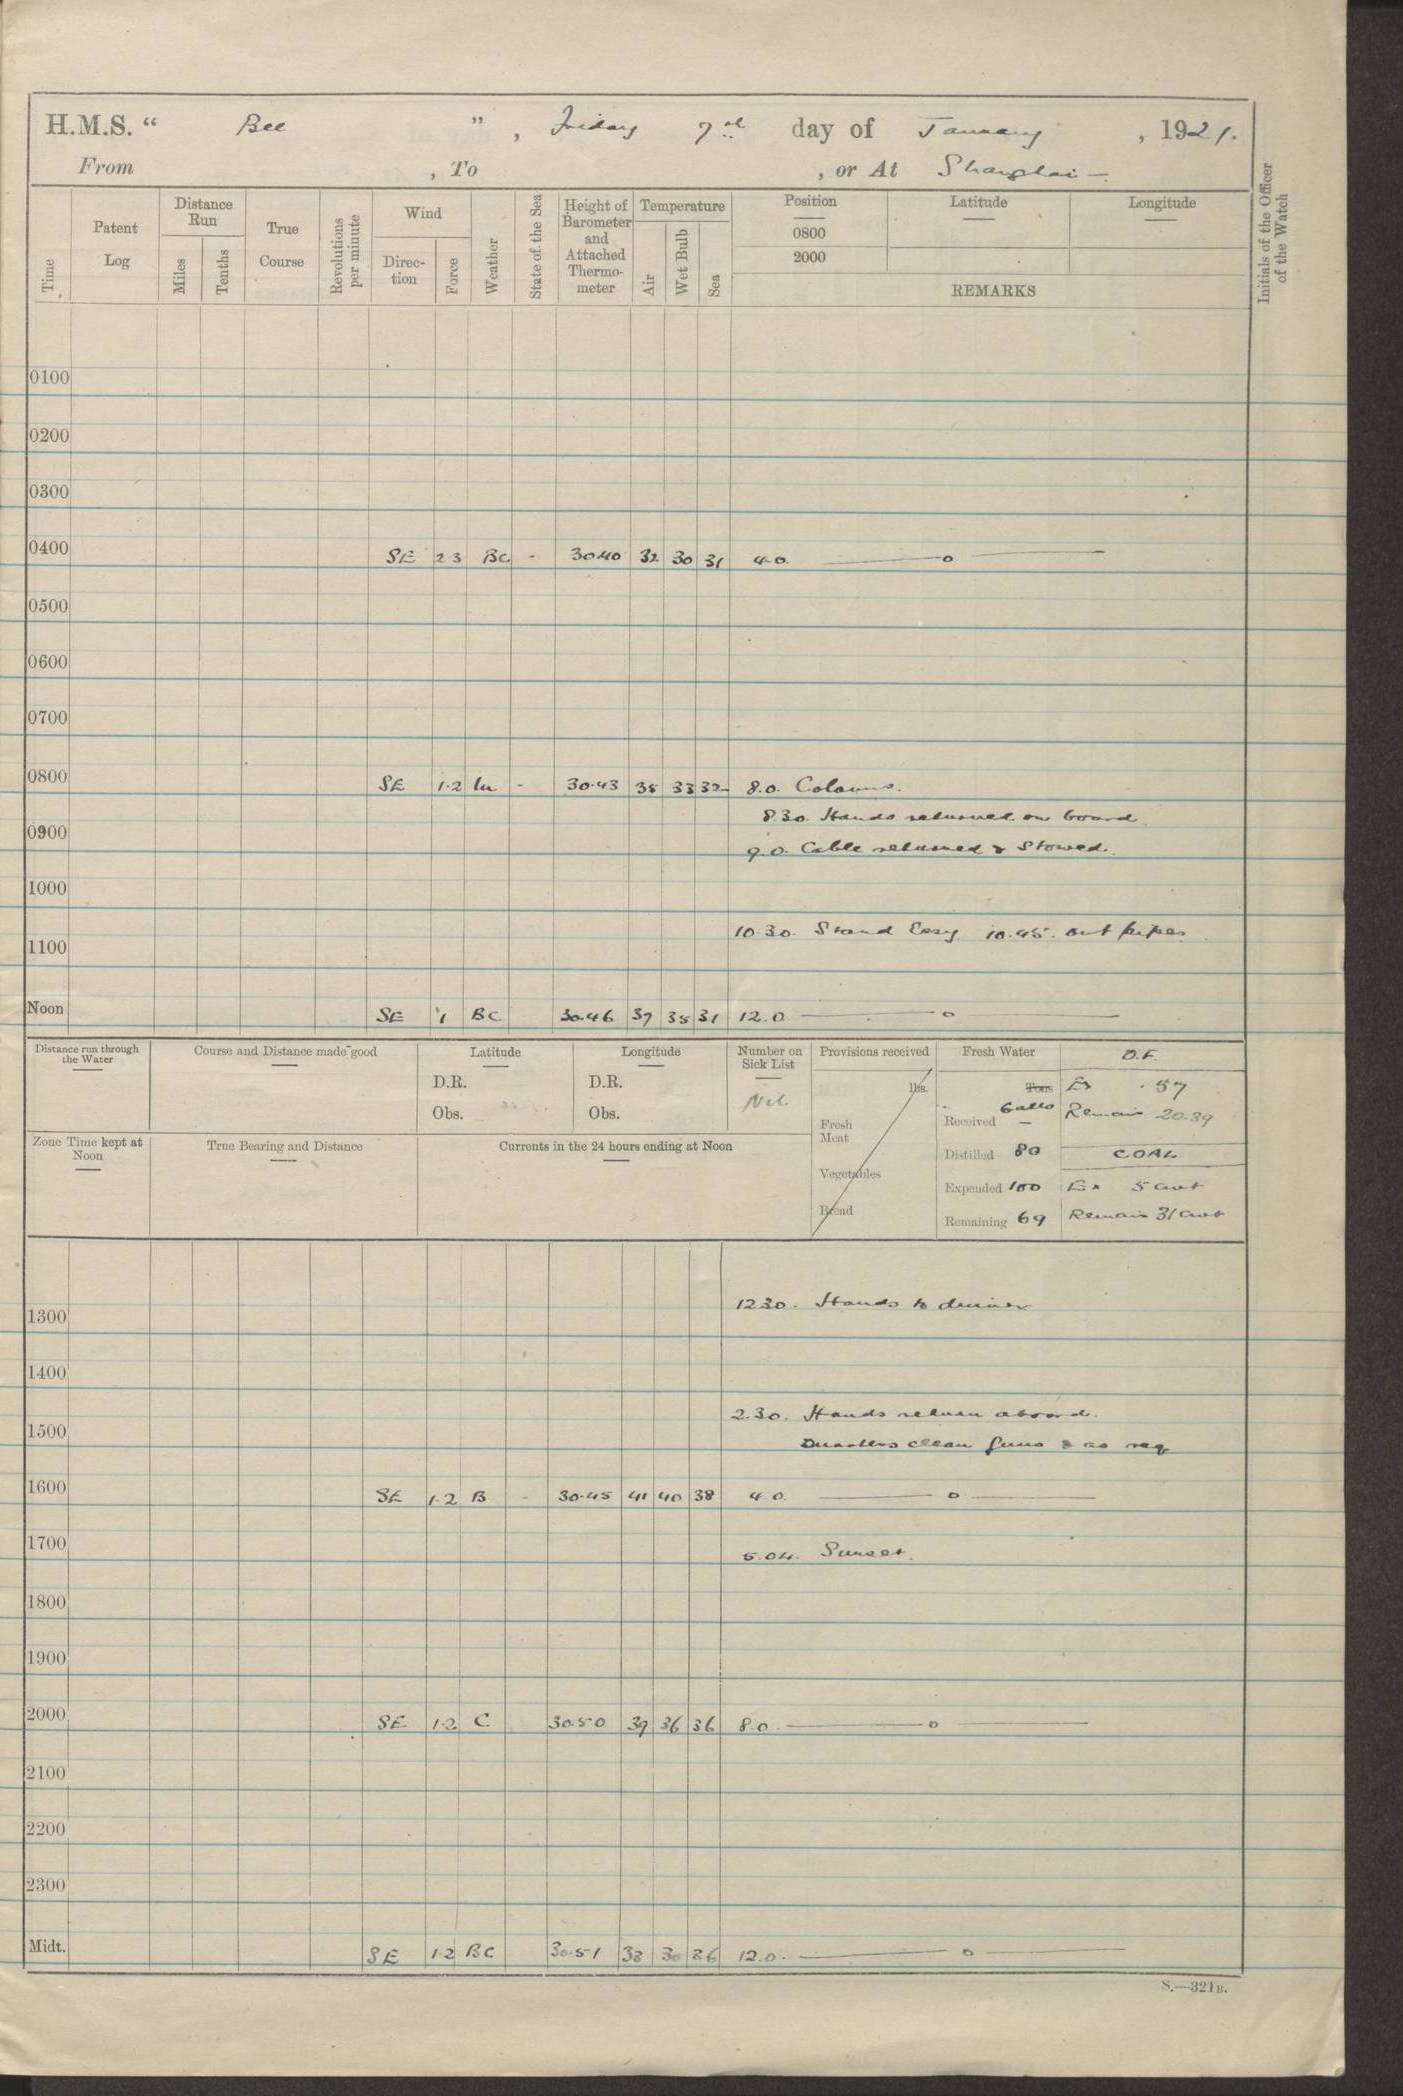 H.M.S. “ Bee ” , Friday 7th day of January , 1921.
From , To , or At Shanghai –
Time Patent Log Distance Run Miles Tenths True Course Revolutions per minute Wind Direc-tion Force Weather State of the Sea Height of Barometer and Attached Thermo-meter Temperature Air Wet Bulb Sea Position 0800 2000 Latitude Longitude
REMARKS
Initials of the Officer of the Watch
0100
0200
0300
0400 SE 2·3 BC - 30·40 32 30 31 4.0. —— o ——
0500
0600
0700
0800 SE 1·2 - 30·43 35 33 32 8.0. Colours.
8.30. Hands returned on board
0900
9.0. Cable returned & Stowed.
1000
10.30. Stand Easy 10.45. out pipes
1100
Noon SE 1 BC 30.46 37 35 31 12.0 —— o ——
Distance run through the Water
Course and Distance made good
Latitude
D.R.
Obs.
Longitude
D.R.
Obs.
Number on Sick List
Nil
Provisions received
lbs.
Fresh Meat
Vegetables
Bread
Fresh Water
Tons
Galls
Received –
Distilled 80
Expended 100
Remaining 69
O.F.
Ex .57
Remain 20.39
COAL
Ex 5 cwt
Remain 31 cwt
Zone Time kept at Noon
True Bearing and Distance
Currents in the 24 hours ending at Noon
12.30. Hands to dinner
1300
1400
2.30. Hands return aboard.
1500
Quarters clean guns & as req
1600 SE 1·2 B - 30·45 41 40 38 4.0. —— o ——
1700
5.04. Sunset.
1800
1900
2000 SE 1·2 C 30·50 39 36 36 8.0. —— o ——
2100
2200
2300
Midt. SE 1·2 BC 30·51 38 30 36 12.0. —— o ——
S.—321B.